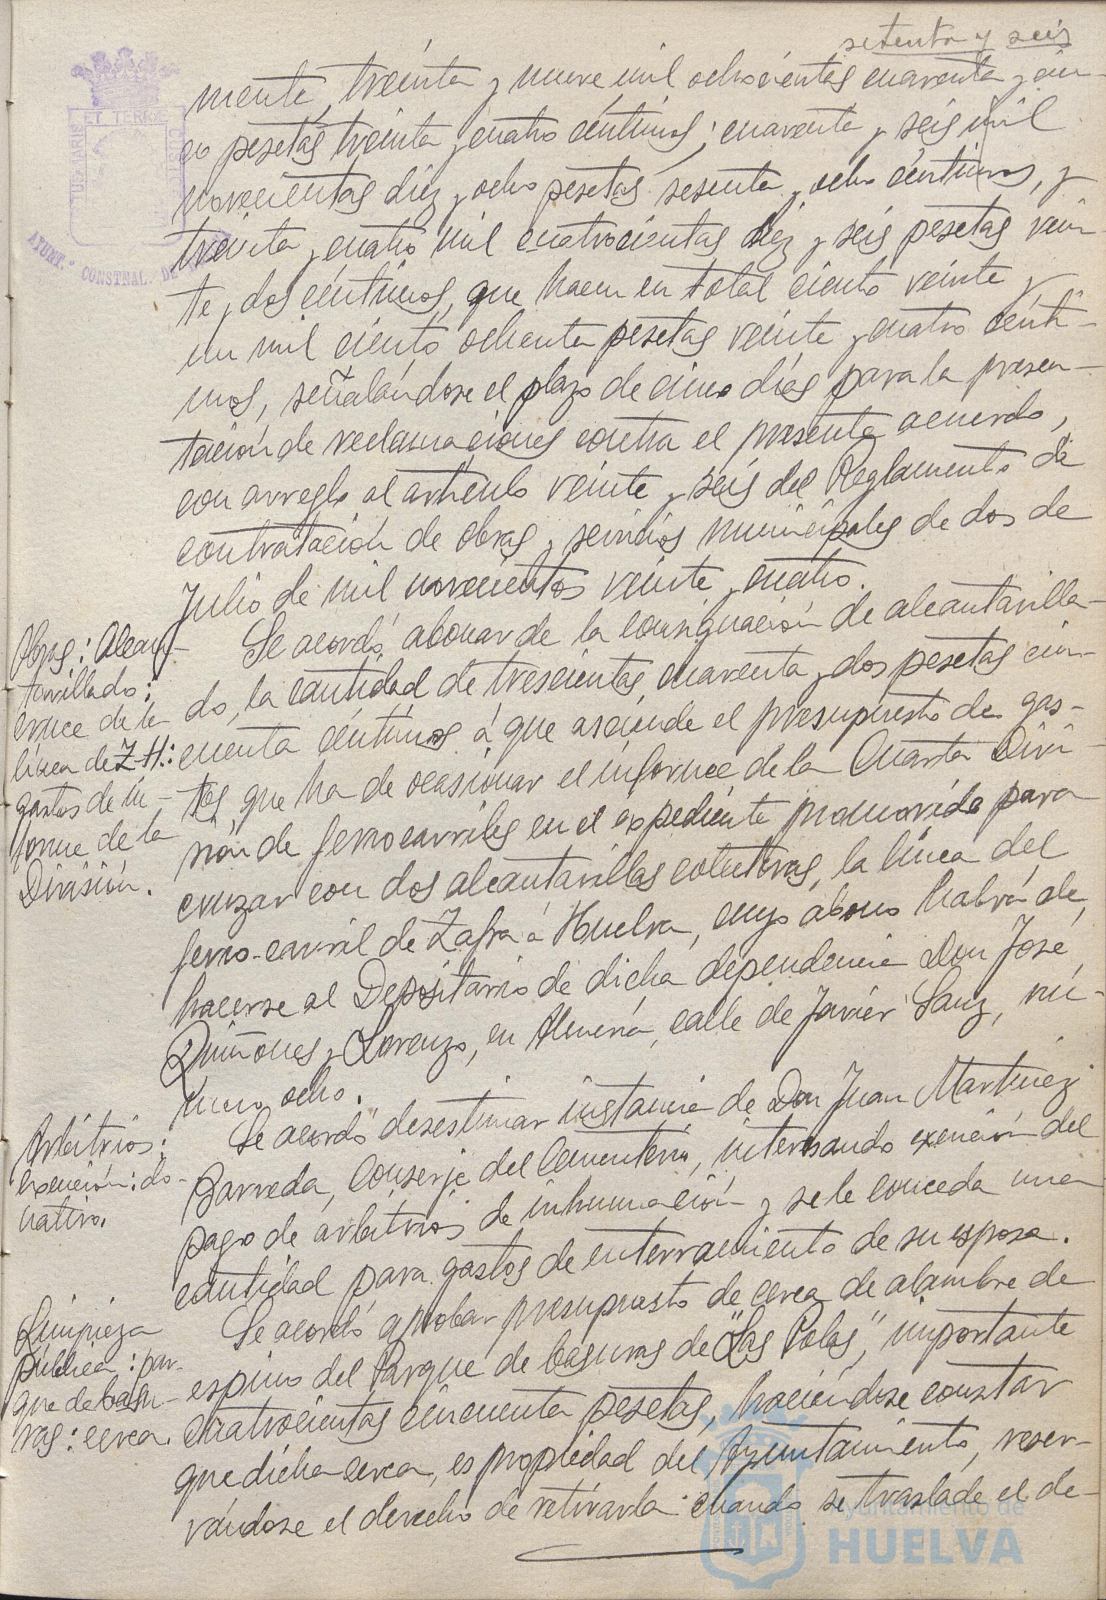 setenta y seis
mente, treinta y nueve mil ochocientas cuarenta y cin-
co pesetas treinta y cuatro céntimos; cuarenta y seis mil
novecientas diez y ocho pesetas sesenta y ocho céntimos, y
treinta y cuatro mil cuatrocientas diez y seis pesetas vein-
te y dos céntimos, que hacen en total ciento veinte y
un mil ciento ochenta pesetas veinte y cuatro cénti-
mos, señalándose el plazo de cinco días para la presen-
tación de reclamaciones contra el presente acuerdo,
con arreglo al artículo veinte y seis del Reglamento de
contratación de obras y servicios municipales de dos de
Julio de mil novecientos veinte y cuatro.
Obras: Alcan-
tarillado:
cruce de la
línea de Z-H.:
gastos de in-
forme de la
División.
Se acordó abonar de la consignación de alcantarilla-
do, la cantidad de trescientas cuarenta y dos pesetas cin-
cuenta céntimos á que asciende el presupuesto de gas-
tos, que ha de ocasionar el informe de la Cuarta Divi-
sión de ferrocarriles en el expediente promovido para
cruzar con dos alcantarillas colectoras, la línea del
ferro-carril de Zafra á Huelva, cuyo abono habrá de
hacerse al Depositario de dicha dependencia Don José
Quiñones y Lorenzo, en Almería, calle de Javier Sanz, nú-
mero ocho.
Arbitrios:
exención: do-
nativo.
Se acordó desestimar instancia de Don Juan Martínez
Barreda, Conserje del Cementerio, interesando exención del
pago de arbitrios de inhumación y se le conceda una
cantidad para gastos de enterramiento de su esposa.
Limpieza
pública: par-
que de basu-
ras: cerca.
Se acordó aprobar presupuesto de cerca de alambre de
espino del Parque de basuras de "Las Polas", importante
cuatrocientas cincuenta pesetas, haciéndose constar
que dicha cerca, es propiedad del Ayuntamiento, reser-
vándose el derecho de retirarla cuando se traslade el de-
AYUNT.º CONSTNAL. DE
Ayuntamiento de
HUELVA